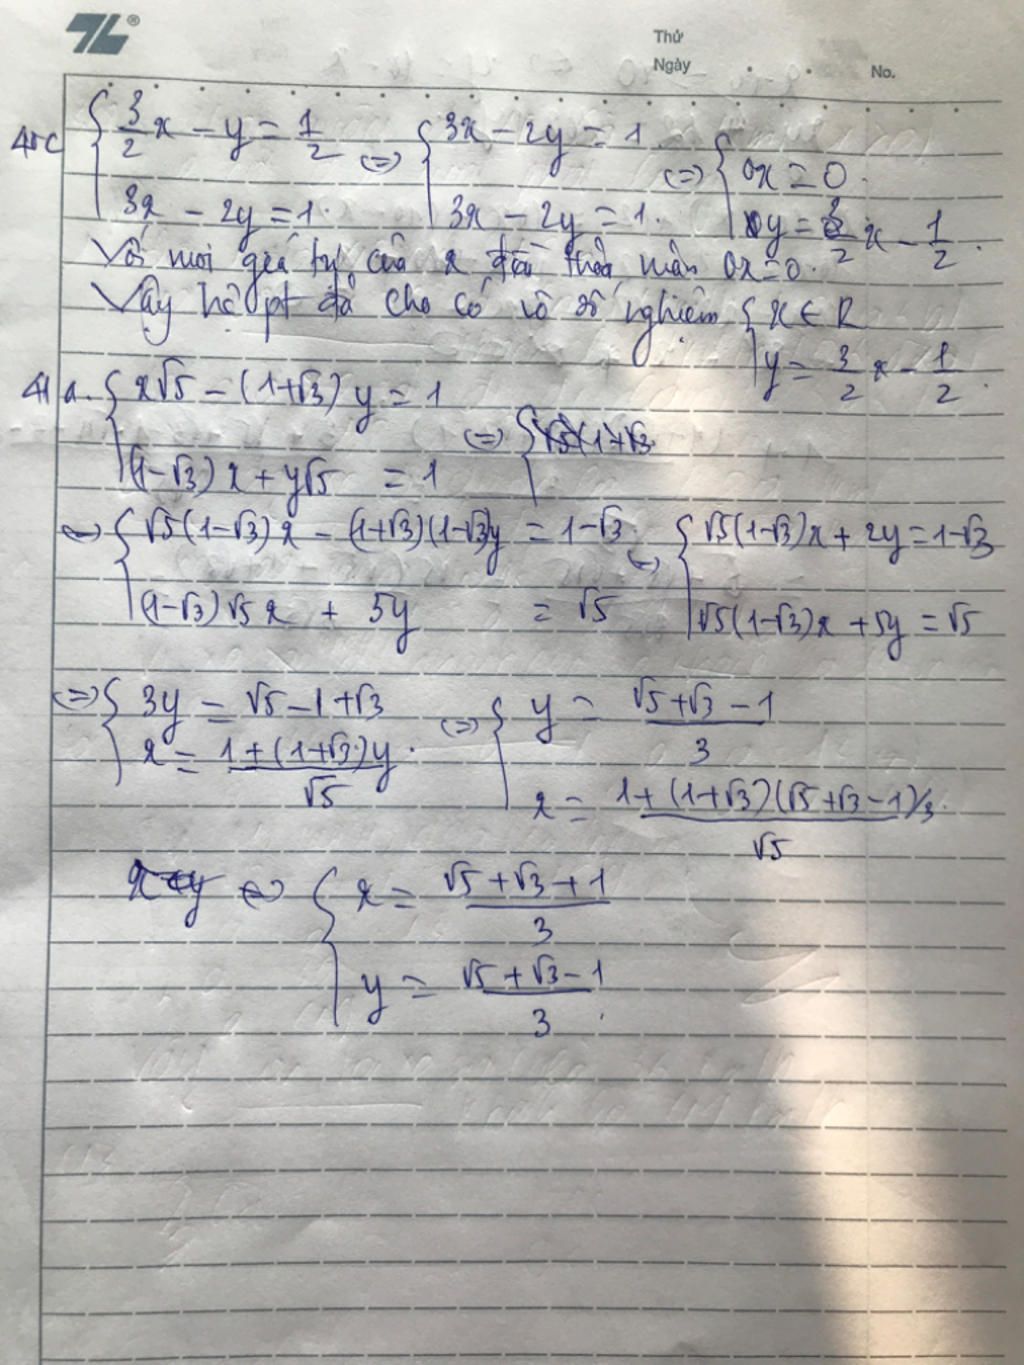 TL®
Thứ
Ngày
No.
40c { 3/2 x - y = 1/2 (=) { 3x - 2y = 1 (=) { 0x = 0.
3x - 2y = 1. 3x - 2y = 1. y = 3/2 x - 1/2.
Với mọi giá trị của x đều thỏa mãn 0x = 0.
Vậy hệ pt đã cho có vô số nghiệm { x ∈ R
y = 3/2 x - 1/2.
41 a. { x√5 - (1+√3) y = 1 (=) { √5(1+√3
(1-√3) x + y√5 = 1
(=) { √5(1-√3)x - (1+√3)(1-√3)y = 1-√3 (=) { √5(1-√3)x + 2y = 1-√3
(1-√3)√5 x + 5y = √5 √5(1-√3)x + 5y = √5
(=) { 3y = √5 - 1 + √3 (=) { y = (√5 + √3 - 1)/3
x = (1 + (1+√3)y)/√5. x = (1 + (1+√3)(√5+√3-1)/3)/√5.
(=) { x = (√5 + √3 + 1)/3
y = (√5 + √3 - 1)/3.